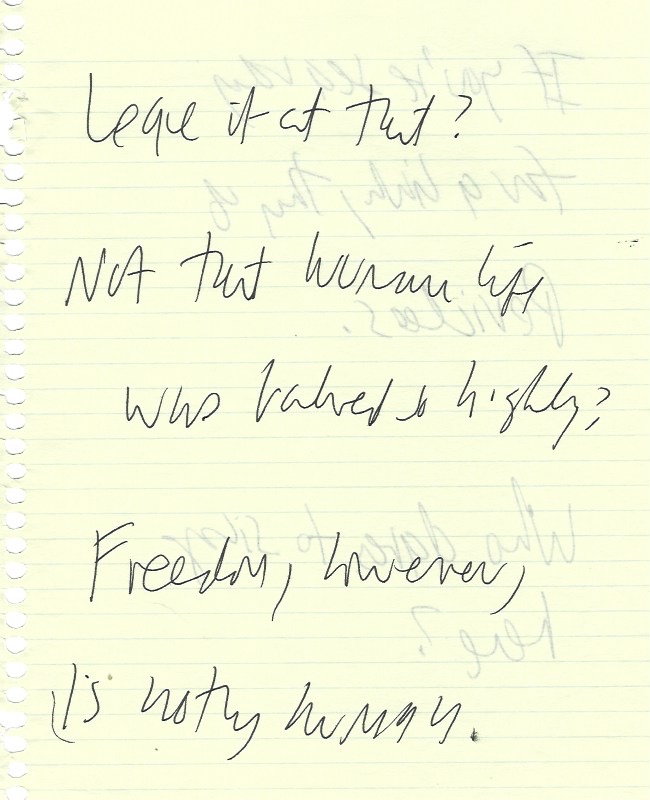 Leave it at that?
Not that human life
was valued so highly?
Freedom, however,
is nothing human.
Who dares to
here?